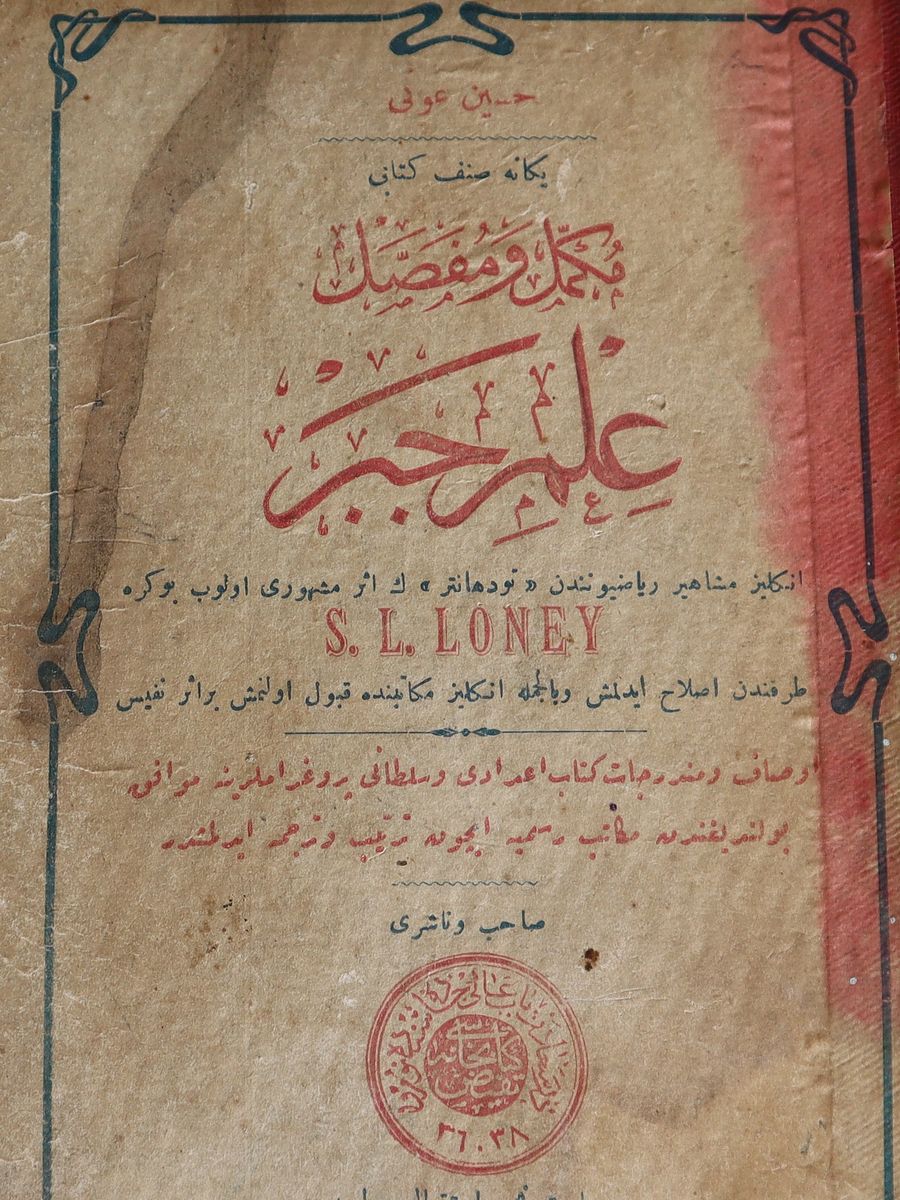 حسين عونى
يكانه صنف كتابى
مُكَمَّل وَ مُفَصَّل
عِلْمِ جَبَرْ
انكليز مشاهير رياضيوندن «تودهانتر» ك اثر مشهورى اولوب بوكره
S. L. LONEY
طرفندن اصلاح ايدلمش وبالجمله انكليز مكاتبنده قبول اولنمش براثر نفيس
اوصاف ومندرجات كتاب اعدادى وسلطانى پروغراملرينه موافق
بولنديغندن مكاتب رسميه ايچون ترتيب وترجمه ايدلمشدر
صاحب وناشرى
٣٦٠٣٨